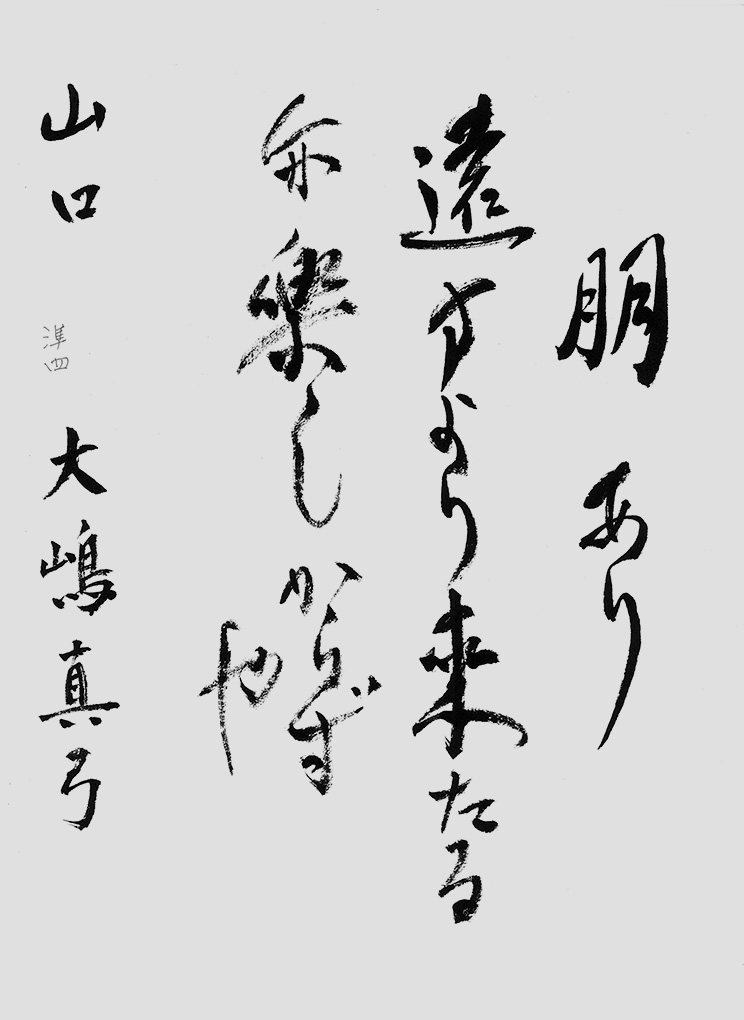 朋あり
遠方より来たる
亦楽しからず
也
山口 準四 大嶋真弓